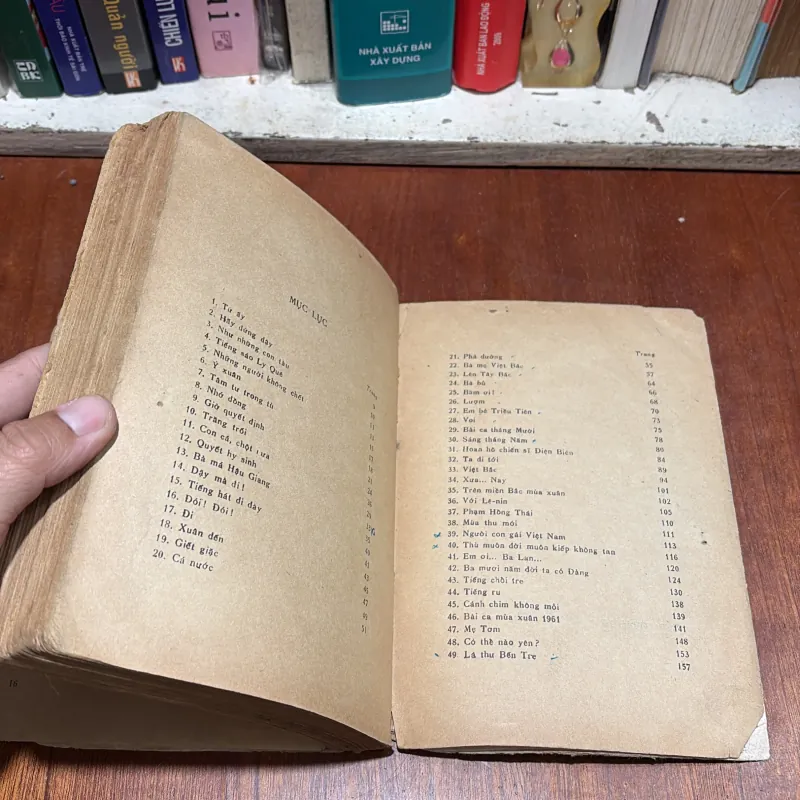 Quản người
CHIẾN L
ui
NHÀ XUẤT BẢN
XÂY DỰNG
NHÀ XUẤT BẢN LAO ĐỘNG
MỤC LỤC
Trang
1. Từ ấy
2. Hãy đứng dậy
3. Như những con tàu
4. Tiếng sáo Ly Quê
5. Những người không chết
6. Ý xuân
7. Tâm tư trong tù
8. Nhớ đồng
9. Giờ quyết định
10. Trăng trối
11. Con cá, chột nưa
12. Quyết hy sinh
13. Bà má Hậu Giang
14. Dậy mà đi!
15. Tiếng hát đi đày
16. Đói! Đói!
17. Đi
18. Xuân đến
19. Giết giặc
20. Cá nước
16
Trang
21. Phá đường 55
22. Bà mẹ Việt Bắc 57
23. Lên Tây Bắc 64
24. Bà bủ 66
25. Bầm ơi! 68
26. Lượm 70
27. Em bé Triều Tiên 73
28. Vơi 75
29. Bài ca tháng Mười 78
30. Sáng tháng Năm 80
31. Hoan hô chiến sĩ Điện Biên 84
32. Ta đi tới 89
33. Việt Bắc 94
34. Xưa... Nay 101
35. Trên miền Bắc mùa xuân 102
36. Với Lê-nin 105
37. Phạm Hồng Thái 110
38. Mùa thu mới 111
39. Người con gái Việt Nam 113
40. Thù muôn đời muôn kiếp không tan 116
41. Em ơi... Ba Lan... 120
42. Ba mươi năm đời ta có Đảng 124
43. Tiếng chổi tre 130
44. Tiếng ru 138
45. Cánh chim không mỏi 139
46. Bài ca mùa xuân 1961 141
47. Mẹ Tơm 148
48. Có thể nào yên? 153
49. Lá thư Bến Tre 157